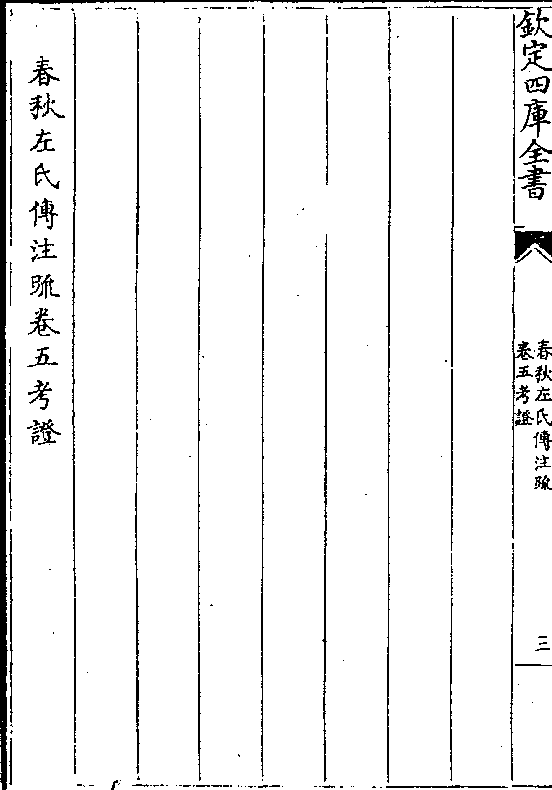 欽定四庫全書
春秋左氏傳注䟽
卷五考證
三
春秋左氏傳注䟽卷五考證